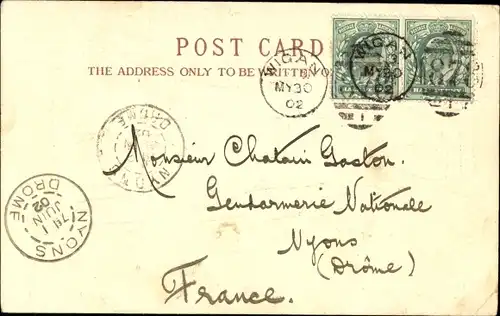 POST CARD
THE ADDRESS ONLY TO BE WRITTEN
WIGAN
MY 30
02
WIGAN
MY 30
02
1
DROME
Monsieur Chatain Gaston.
Gendarmerie Nationale
Nyons
(Drôme)
France.
NYONS
7E 1
JUIN
02
DROME